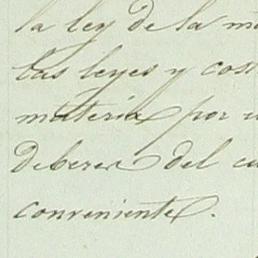 la ley de la m
las leyes y cos
materia por
deberes del cu
conveniente.